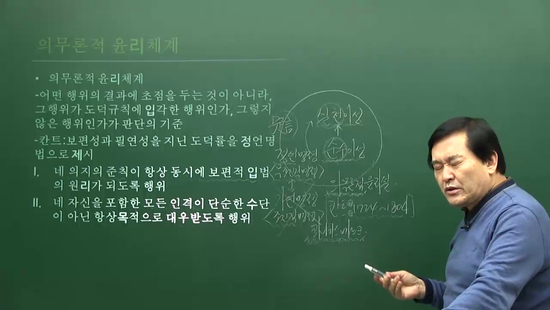 의무론적 윤리체계
• 의무론적 윤리체계
-어떤 행위의 결과에 초점을 두는 것이 아니라,
그행위가 도덕규칙에 입각한 행위인가, 그렇지
않은 행위인가가 판단의 기준
-칸트:보편성과 필연성을 지닌 도덕률을 정언명
법으로 제시
I. 네 의지의 준칙이 항상 동시에 보편적 입법
의 원리가 되도록 행위
II. 네 자신을 포함한 모든 인격이 단순한 수단
이 아닌 항상목적으로 대우받도록 행위
실천이성
순수이성
정언명령
가언명령
1724~1804